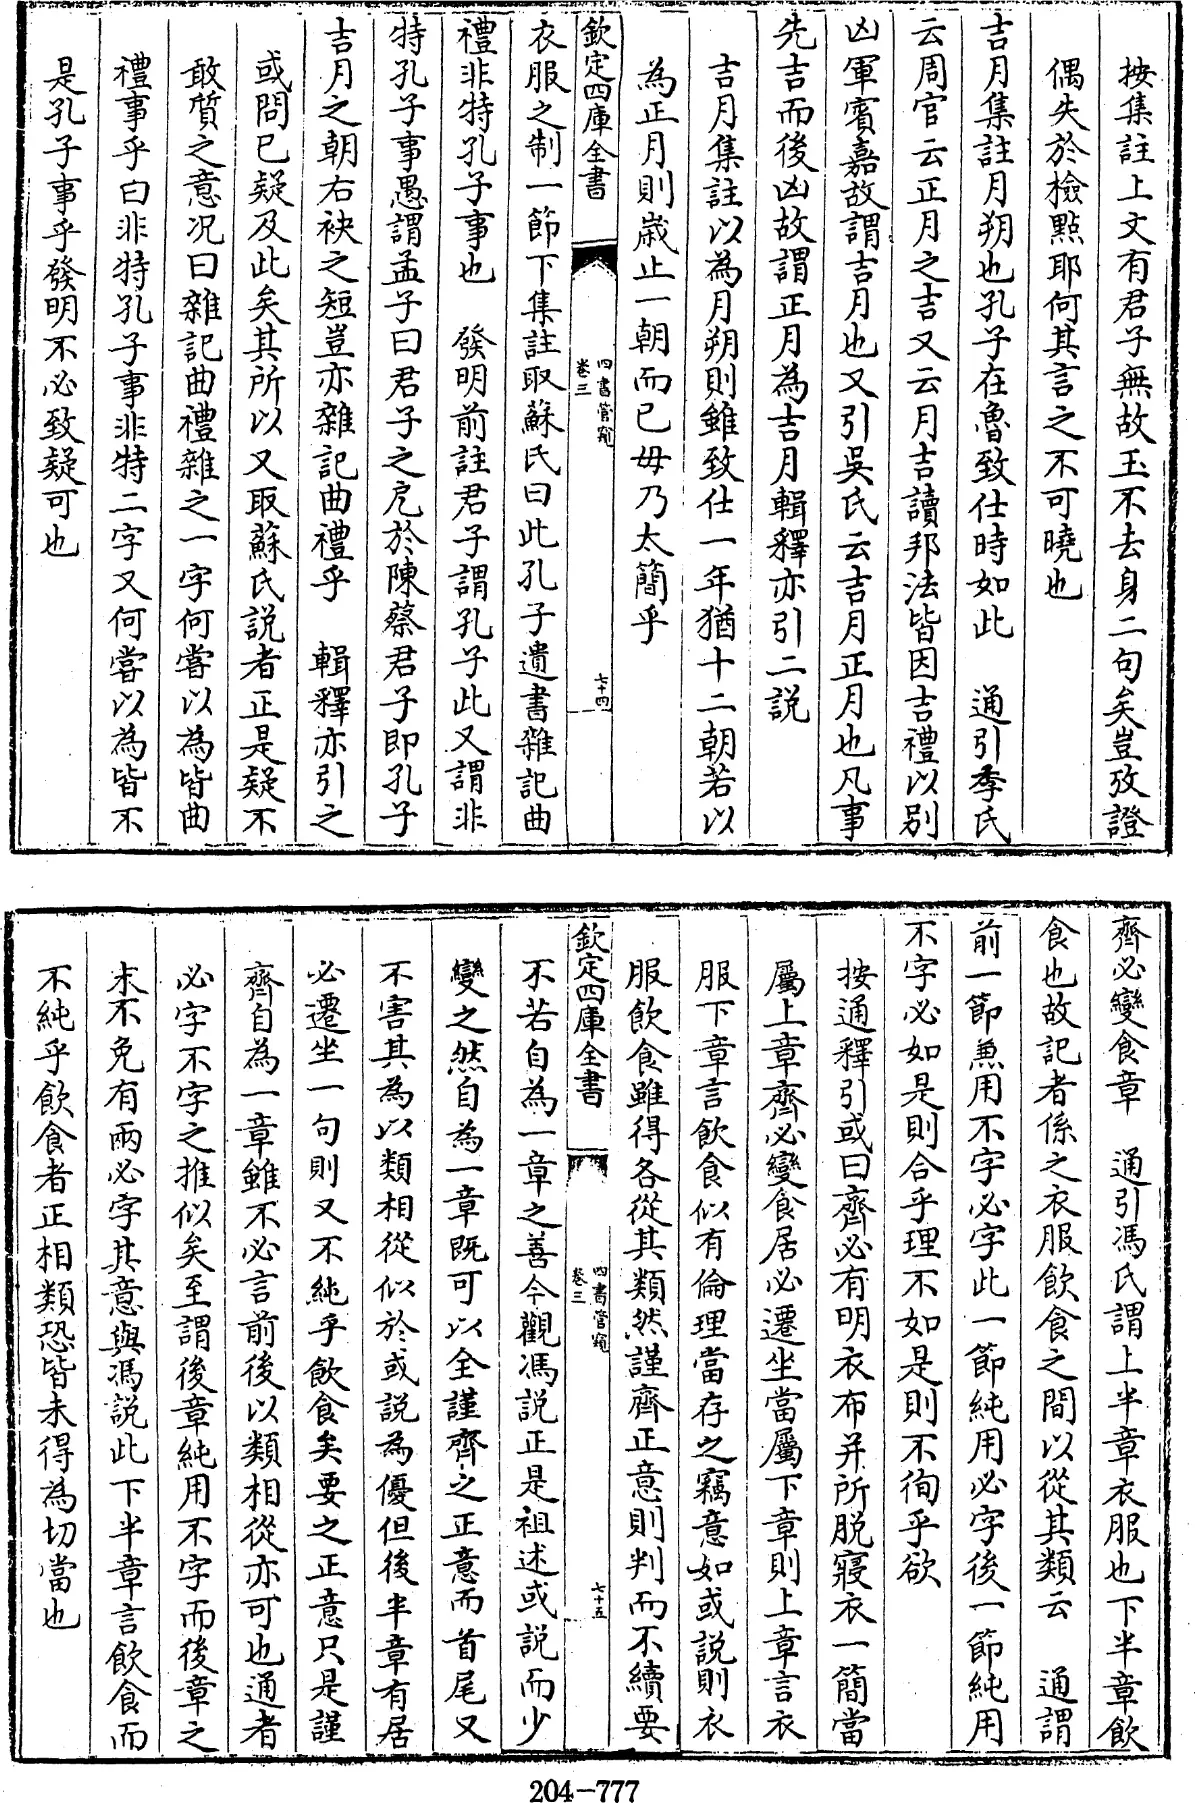 按集註上文有君子無故玉不去身二句矣豈攷證
偶失於檢點耶何其言之不可曉也
吉月集註月朔也孔子在魯致仕時如此　通引季氏
云周官云正月之吉又云月吉讀邦法皆因吉禮以别
凶軍賓嘉故謂吉月也又引吳氏云吉月正月也凡事
先吉而後凶故謂正月為吉月輯釋亦引二説
吉月集註以為月朔則雖致仕一年猶十二朝若以
為正月則歲止一朝而已毋乃太簡乎
欽定四庫全書
四書管窺
卷三
七十四
衣服之制一節下集註取蘇氏曰此孔子遺書雜記曲
禮非特孔子事也　發明前註君子謂孔子此又謂非
特孔子事愚謂孟子曰君子之戹於陳蔡君子即孔子
吉月之朝右袂之短豈亦雜記曲禮乎　輯釋亦引之
或問已疑及此矣其所以又取蘇氏説者正是疑不
敢質之意況曰雜記曲禮雜之一字何嘗以為皆曲
禮事乎曰非特孔子事非特二字又何嘗以為皆不
是孔子事乎發明不必致疑可也
齊必變食章　通引馮氏謂上半章衣服也下半章飲
食也故記者係之衣服飲食之間以從其類云　通謂
前一節兼用不字必字此一節純用必字後一節純用
不字必如是則合乎理不如是則不徇乎欲
按通釋引或曰齊必有明衣布并所脱寢衣一簡當
屬上章齊必變食居必遷坐當屬下章則上章言衣
服下章言飲食似有倫理當存之竊意如或説則衣
服飲食雖得各從其類然謹齊正意則判而不續要
欽定四庫全書
四書管窺
卷三
七十五
不若自為一章之善今觀馮説正是祖述或説而少
變之然自為一章既可以全謹齊之正意而首尾又
不害其為以類相從似於或説為優但後半章有居
必遷坐一句則又不純乎飲食矣要之正意只是謹
齊自為一章雖不必言前後以類相從亦可也通者
必字不字之推似矣至謂後章純用不字而後章之
末不免有兩必字其意與馮説此下半章言飲食而
不純乎飲食者正相類恐皆未得為切當也
204-777